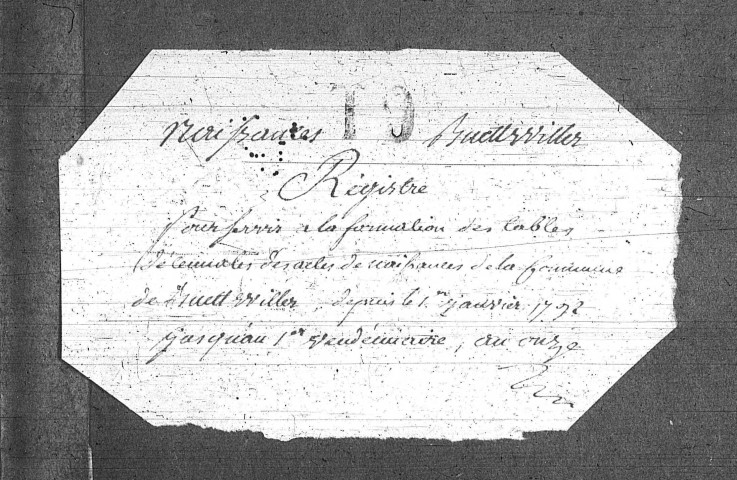 Naissances T9 Buettwiller
Régistre
Pour servir a la formation des tables
décennales des actes de naissances de la Commune
de Buettwiller, depuis le 1.er janvier 1792
jusqu'au 1.er Vendémiaire, an onze